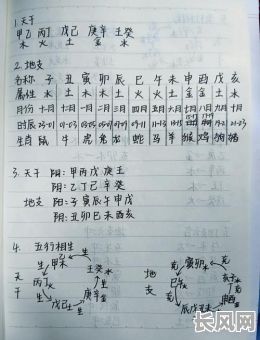 1.天干
甲乙 丙丁 戊己 庚辛 壬癸
木 火 土 金 水
2.地支
名称 子 丑 寅 卯 辰 巳 午 未 申 酉 戌 亥
属性 水 土 木 木 土 火 火 土 金 金 土 水
月份 十一月 十二月 一月 二月 三月 四月 五月 六月 七月 八月 九月 十月
时辰 23-01 01-03 03-05 05-07 07-09 09-11 11-13 13-15 15-17 17-19 19-21 21-23
生肖 鼠 牛 虎 兔 龙 蛇 马 羊 猴 鸡 狗 猪
3.天干 阳:甲丙戊庚壬
阴:乙丁己辛癸
地支 阳:子寅辰午申戌
阴:丑卯巳未酉亥
4. 五行相生
天干
生 甲乙木 生
丙丁火
生 戊己土 生
庚辛金
生 壬癸水
地支
寅卯木
巳午火
辰戌丑未土
申酉金
亥子水
长风网